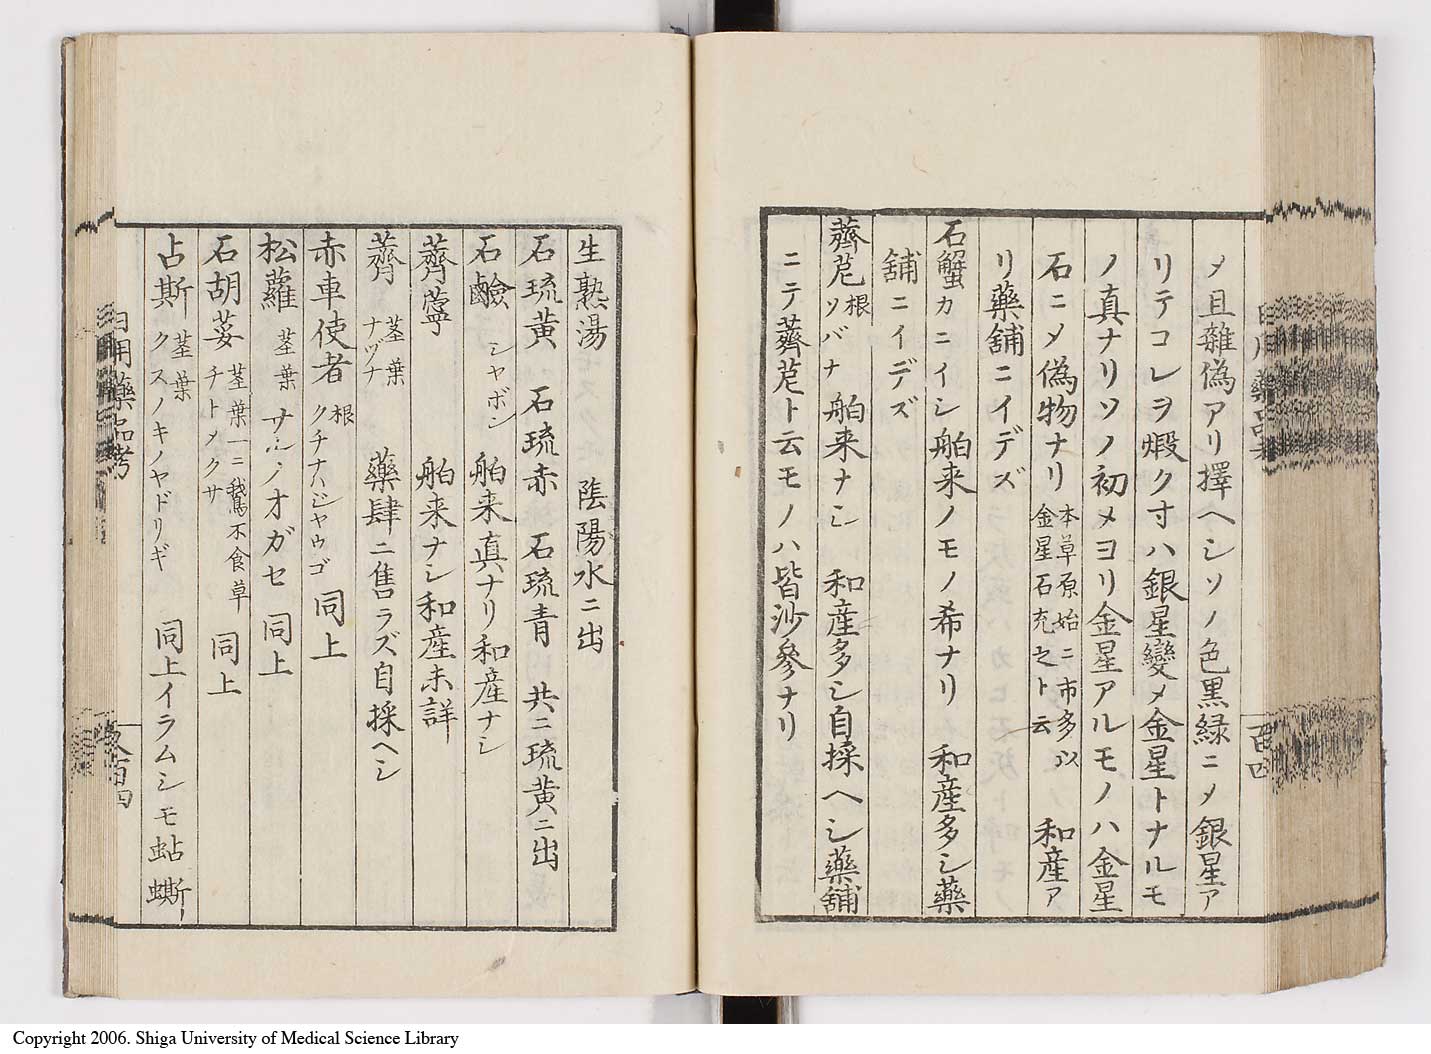 メ且雜偽アリ擇ヘシソノ色黒緑ニメ銀星ア
リテコレヲ煅クヿハ銀星變メ金星トナルモ
ノ真ナリソノ初メヨリ金星アルモノハ金星
石ニメ偽物ナリ 本草原始ニ市多以金星石充之ト云 和産ア
リ藥舗ニイデズ
石蟹カニイシ舶来ノモノ希ナリ 和産多シ藥
舗ニイデズ
薺苨根ソバナ 舶来ナシ 和産多シ自採ヘシ藥舗
ニテ薺苨ト云モノハ皆沙參ナリ
生熟湯 陰陽水ニ出
石琉黄 石琉赤 石琉青 共ニ琉黄ニ出
石鹼 シヤボン 舶来真ナリ和産ナシ
薺薴 舶来ナシ和産未詳
薺 莖葉 ナヅナ 藥肆ニ售ラズ自採ヘシ
赤車使者 根 クチナハジヤウゴ 同上
松蘿 莖葉 サルノオガセ 同上
石胡荽 莖葉一ニ鵞不食草 チトメクサ 同上
占斯 莖葉 クスノキノヤドリギ 同上イラムシモ蛅蟖ー
日用藥品考
百四
Copyright 2006. Shiga University of Medical Science Library